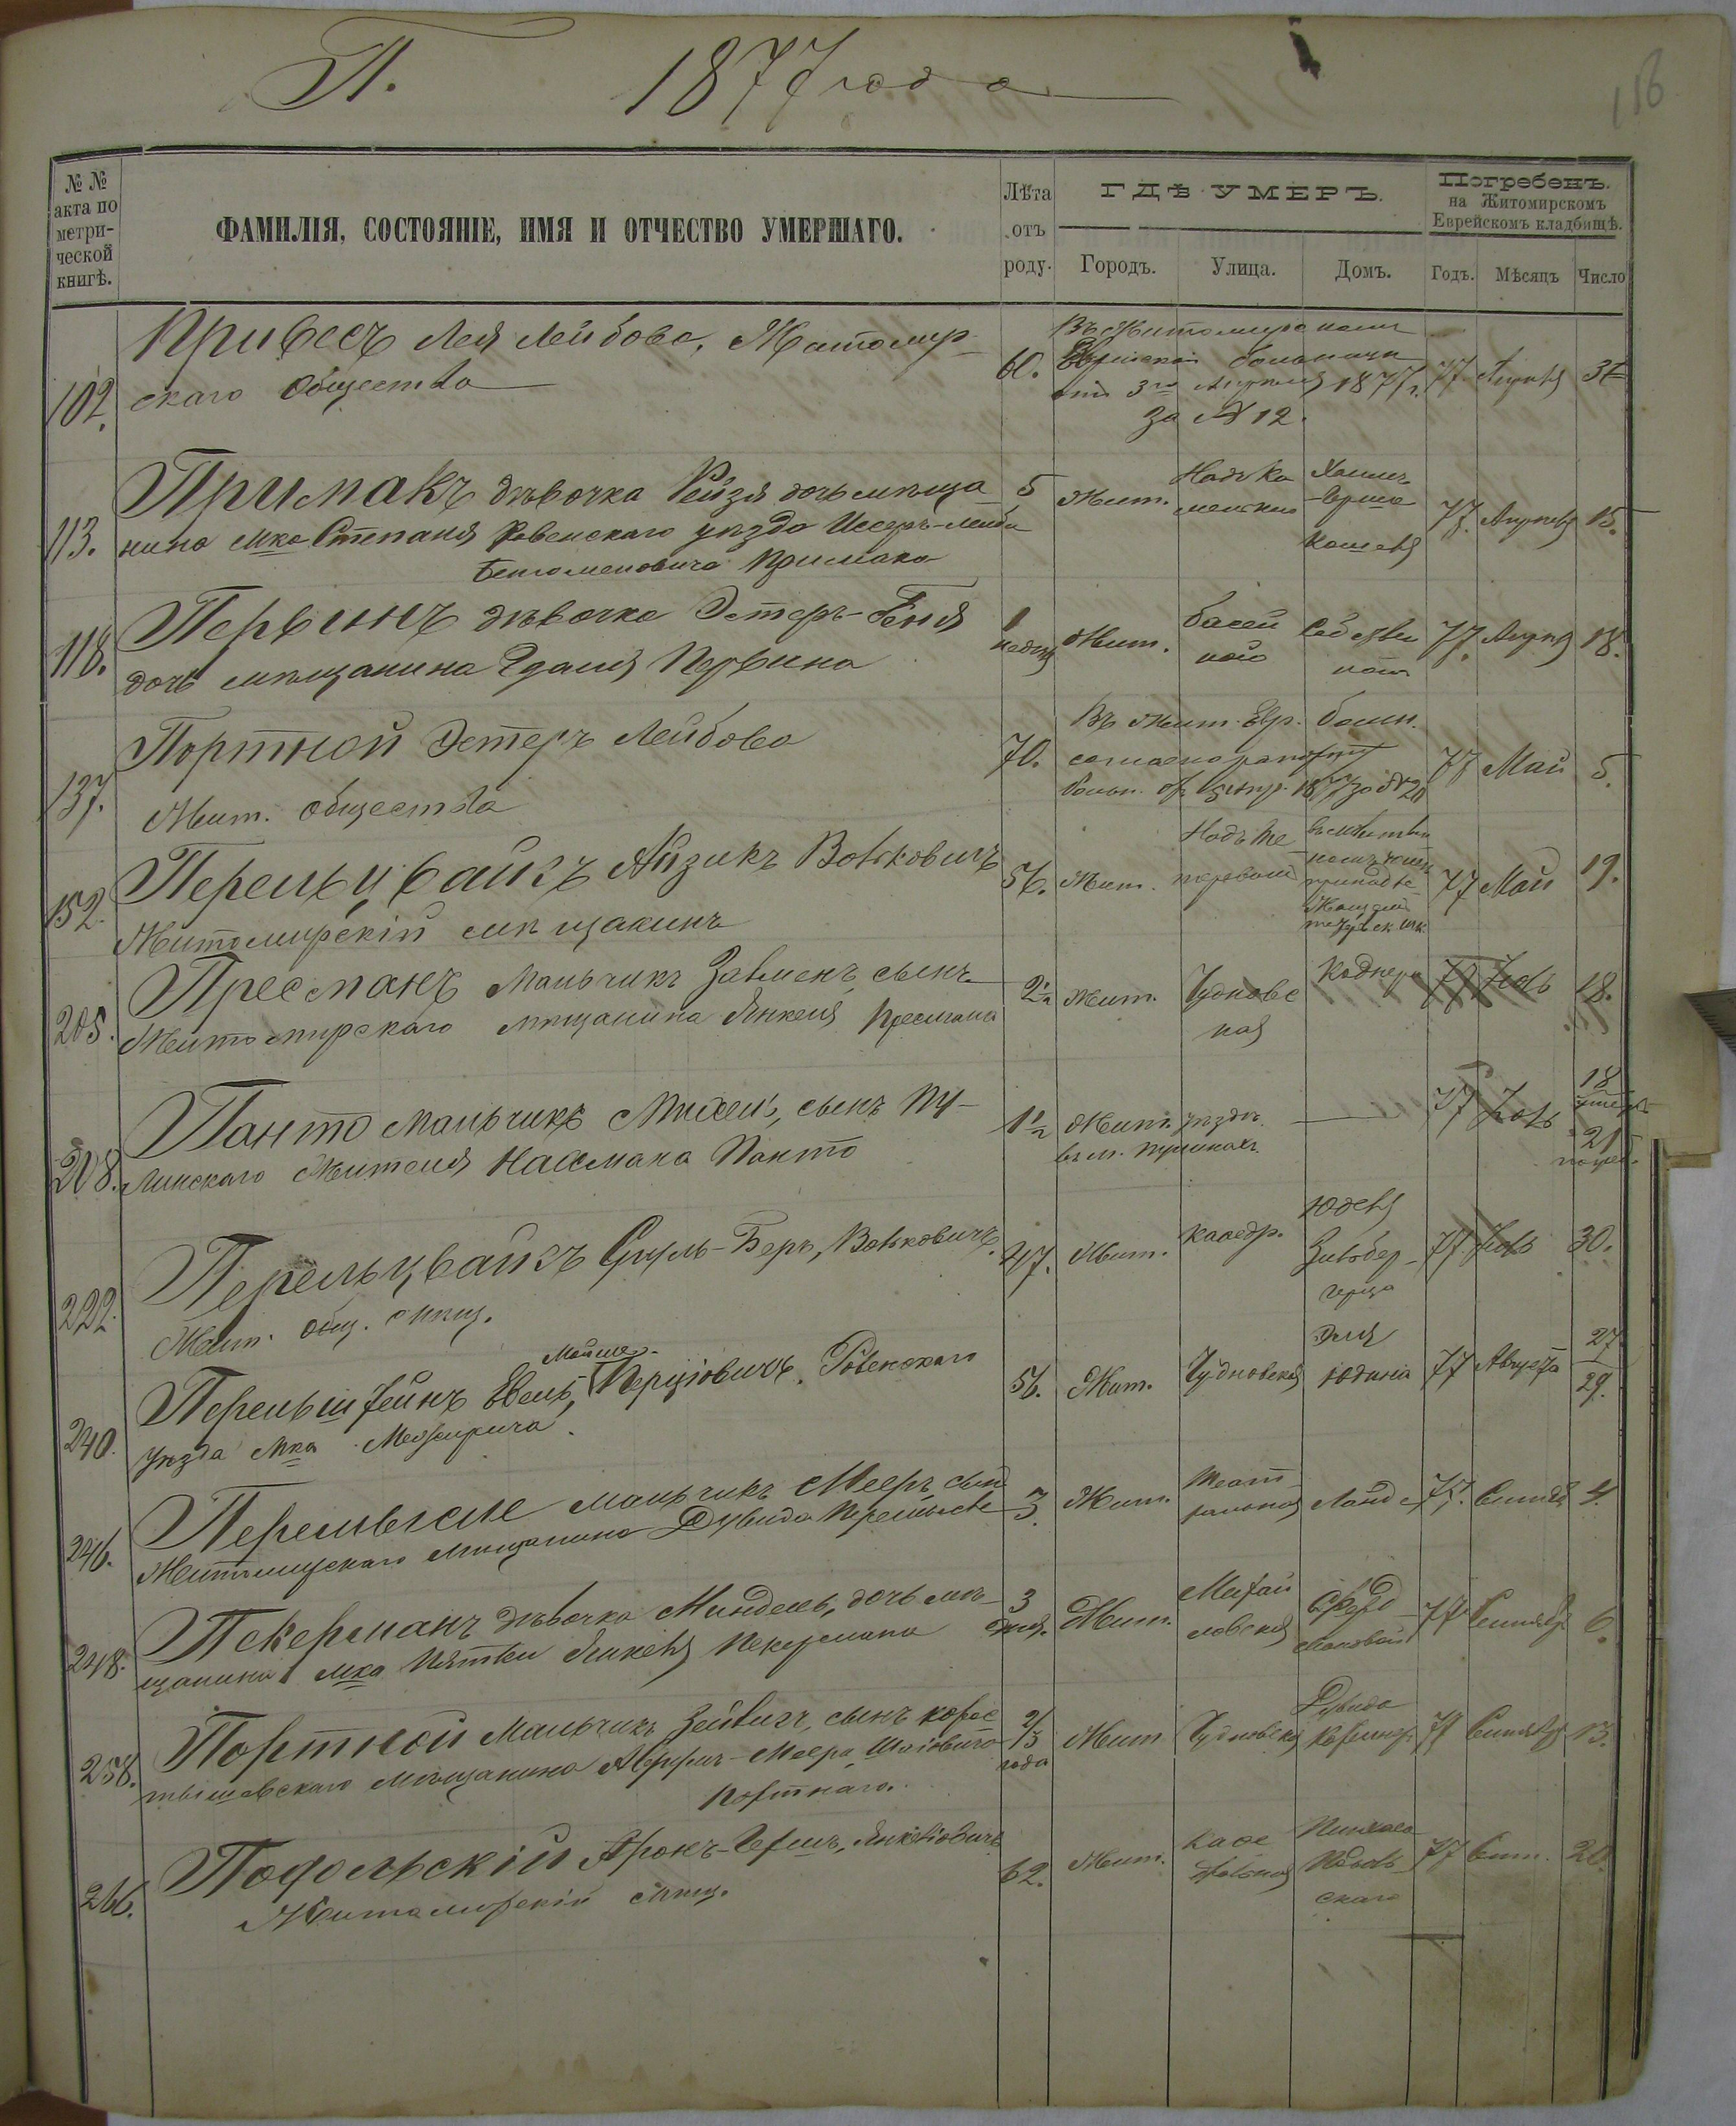 П. 1877 года
116
№ №
акта по
метри-
ческой
книгѣ.
ФАМИЛІЯ, СОСТОЯНІЕ, ИМЯ И ОТЧЕСТВО УМЕРШАГО.
Лѣта
отъ
роду.
ГДѢ УМЕРЪ.
Городъ. Улица. Домъ.
Погребенъ.
на Житомирскомъ
Еврейскомъ кладбищѣ.
Годъ. Мѣсяцъ Число
102. Привесъ Лея Лейбова, Житомир-
скаго Общества
60.
Въ Житомирской
Еврейской больницѣ
3го Апреля 1877 г.
за № 12.
77 Апреля
113. Примакъ дѣвочка Рейзя дочь мѣща-
нина мка Степаня Ровенскаго уѣзда Иссеръ-Лейба
Бенюменовича Примака
5 Жит. Надъ Ка
менкою
Хаима
Герша
Кошеля
77. Апреля 15.
118. Первинъ дѣвочка Эстеръ-Геня
дочь мѣщанина Гдаля Первина
недѣл Жит. басей
ной
77. Апреля 18.
137. Портной Эстеръ Лейбова
Жит. Общества
70.
Въ Жит. Евр. больн.
согласно рапорту
77 Май 5.
152. Перельцвайгъ Айзикъ Волковичъ
Житомирскій мѣщанинъ
56. Жит. Надъ Те
теревомъ
77 Май 19.
205. Пресманъ Мальчикъ Залменъ, сынъ
Житомирскаго мѣщанина Янкеля Пресмана
2½ Жит. Чуднов
ская
Коднера
77 Іюль 18.
208. Панто мальчикъ Михель, сынъ Пу-
линскаго Жителя Нахмана Панто
1½ Жит. уѣздъ.
въ м. Пулинахъ
77 Іюль
18
21
погреб.
222. Перельцвайгъ Сруль-Беръ, Волковичъ.
Жит. общ. мѣщ.
47. Жит. Каѳедр.
Юделя
Зильбер-
герца
77 Іюль 30.
240. Перельштейнъ Евель, Мойше- Перціовичъ. Ровенскаго
уѣзда Мка Межирича.
56. Жит. Чудновская
Эля
Юдина
77 Августа
27
29.
246. Перемысле мальчикъ Мееръ, сынъ
Житомирскаго мѣщанина Дувида Перемысле
3. Жит. Теат
ральная
Ланд
77. Сентяб 4.
248. Пекерманъ дѣвочка Миндель, дочь мѣ-
щанина мка Пятки Янкеля Пекермана
3
дня. Жит. Михай
ловская
77 Сентябр 6.
258. Портной Мальчикъ Зейвигъ, сынъ корос
тышевскаго мѣщанина Меера Шоіовича
Портнаго.
2/3
года
Жит Чудновска
Дувида
77 Сентябр 13.
266. Подольскій Аронъ-Гершъ, Янкеліовичъ
Житомирскій мѣщ.
62. Жит. Каѳе
дральная
Пинхаса
Подоль
скаго
77 Сент. 20.